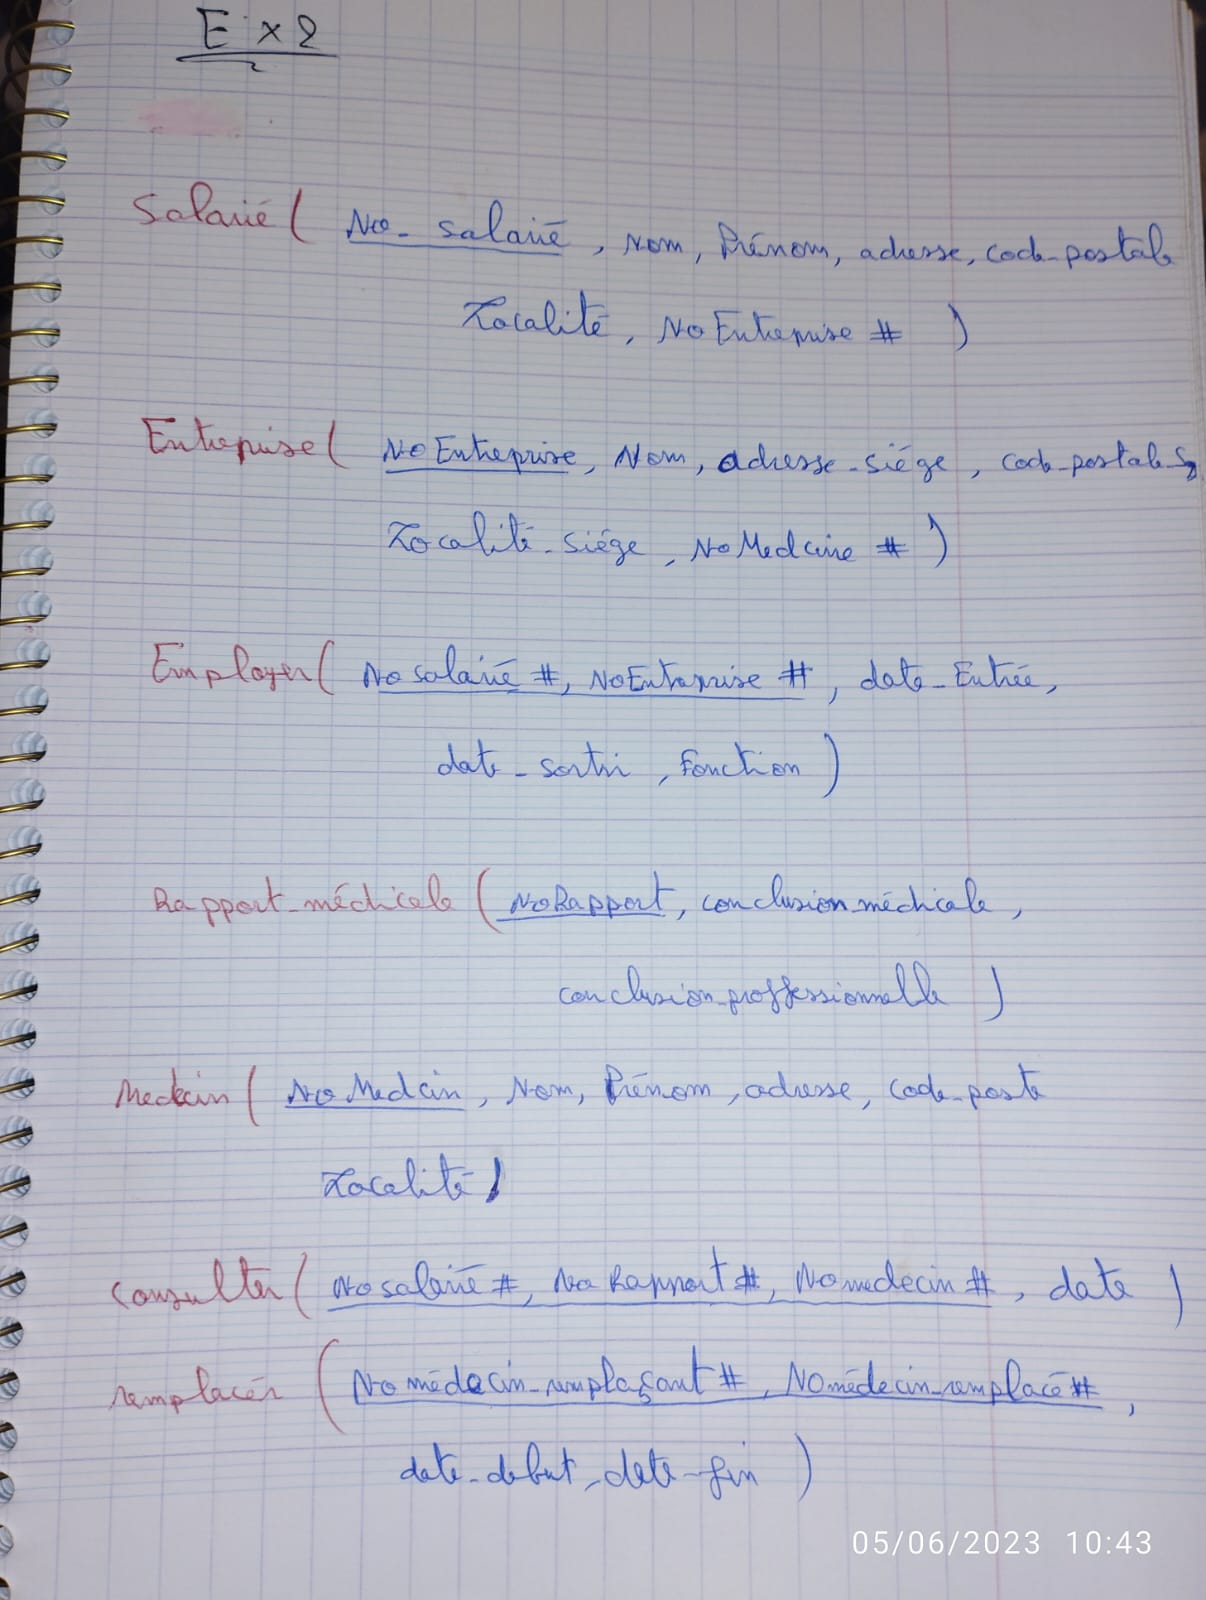 Ex2
Salarié ( No_salarié, Nom, Prénom, adresse, code_postale
Localité, NoEntreprise # )
Entreprise ( NoEntreprise, Nom, adresse_siége, code_postale S,
Localité_siége, NoMedcine # )
Employer ( Nosalarié #, NoEntreprise #, date_Entrée,
date_sortri, Fonction )
Rapport_médicale ( NoRapport, conclusion_médicale,
conclusion_proffessionnelle )
Medcin ( NoMedcin, Nom, Prénom, adresse, Code_poste
Localité )
Consulter ( Nosalarié #, NoRapport #, Nomedecin #, date )
remplacér ( Nomédecin_remplaçant #, NOmédecin_remplacé #,
date_debut, date_fin )
05/06/2023 10:43